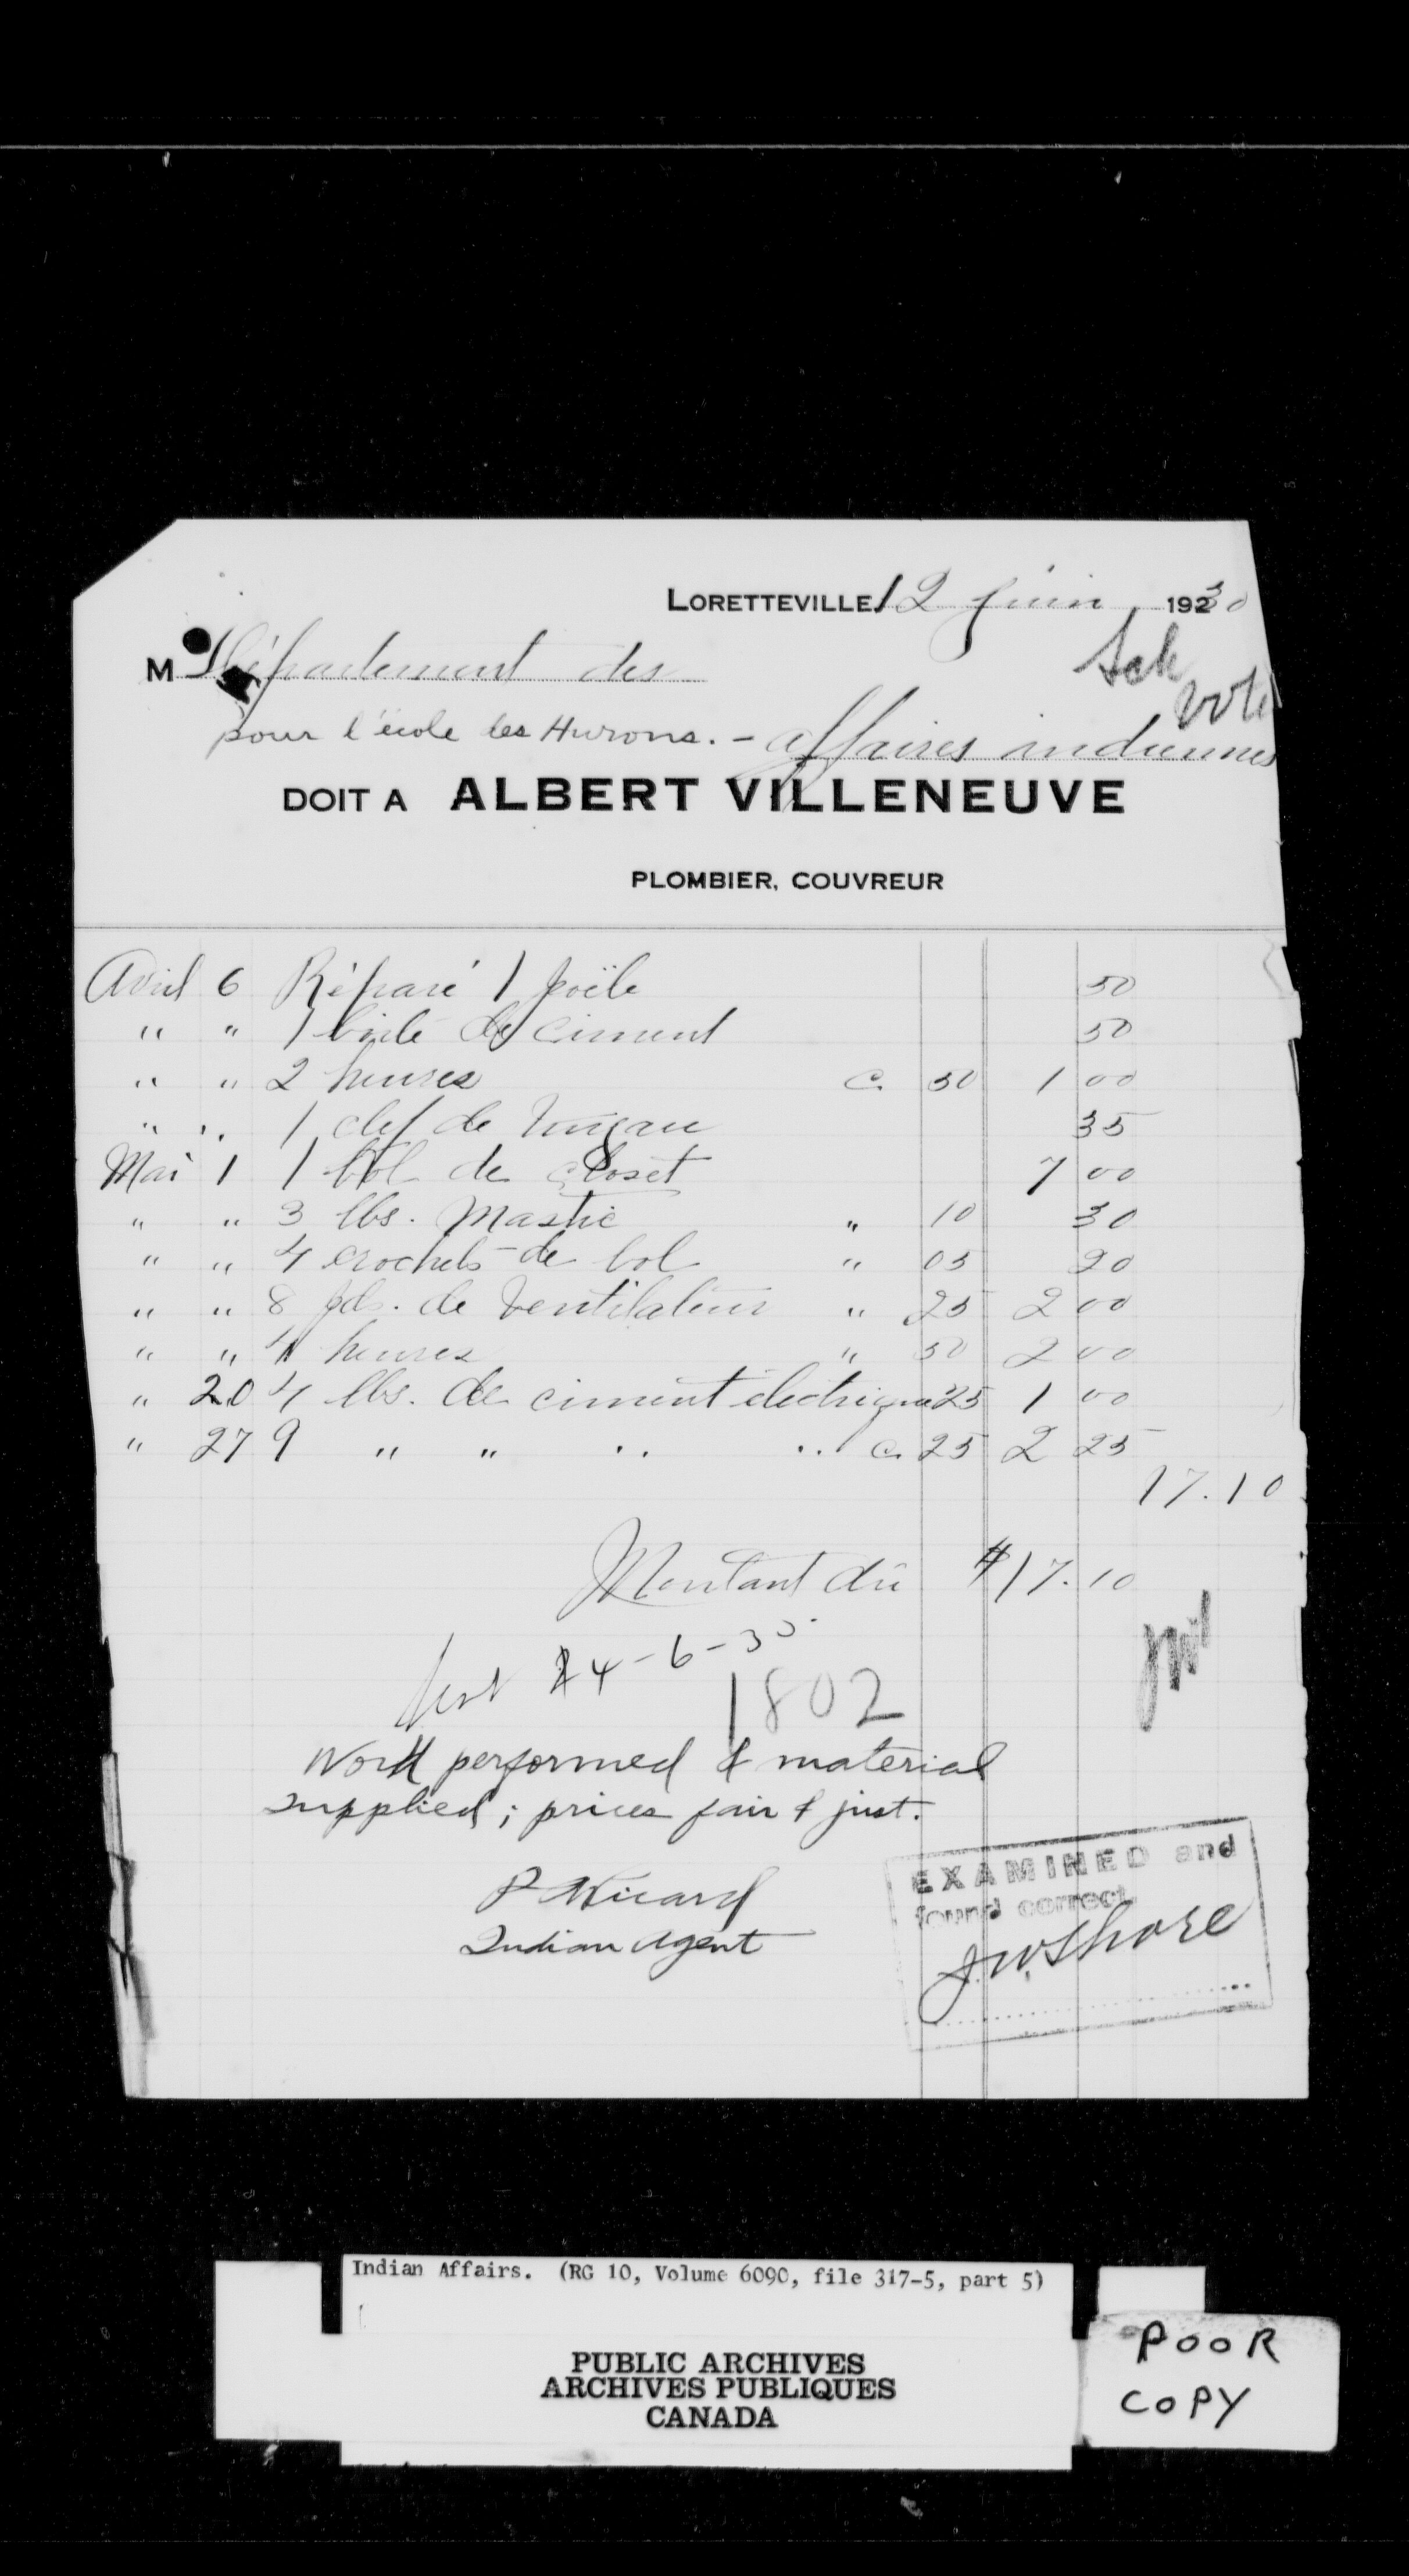 LORETTEVILLE, 12 juin 1930
M Département des
pour l'école les Hurons. - affaires indiennes
Sch
vote
DOIT A ALBERT VILLENEUVE
PLOMBIER, COUVREUR
Avril 6 Réparé 1 poële 50
" " 1 boite de ciment 50
" " 2 heures c. 50 1 00
" " 1 clef de tuyau 35
Mai 1 1 bol de closet 7 00
" " 3 lbs. Mastic " 10 30
" " 4 crochets de bol " 05 20
" " 8 pds. de ventilateur " 25 2 00
" " 4 heures " 50 2 00
" 20 4 lbs. de ciment électrique 25 1 00
" 27 9 " " " " c. 25 2 25
17.10
Montant dû $17.10
24-6-30
1802
Work performed & material
supplied; prices fair & just.
Indian Agent
EXAMINED and
found correct
J.W. Shore
Indian Affairs. (RG 10, Volume 6090, file 317-5, part 5)
PUBLIC ARCHIVES
ARCHIVES PUBLIQUES
CANADA
POOR
COPY